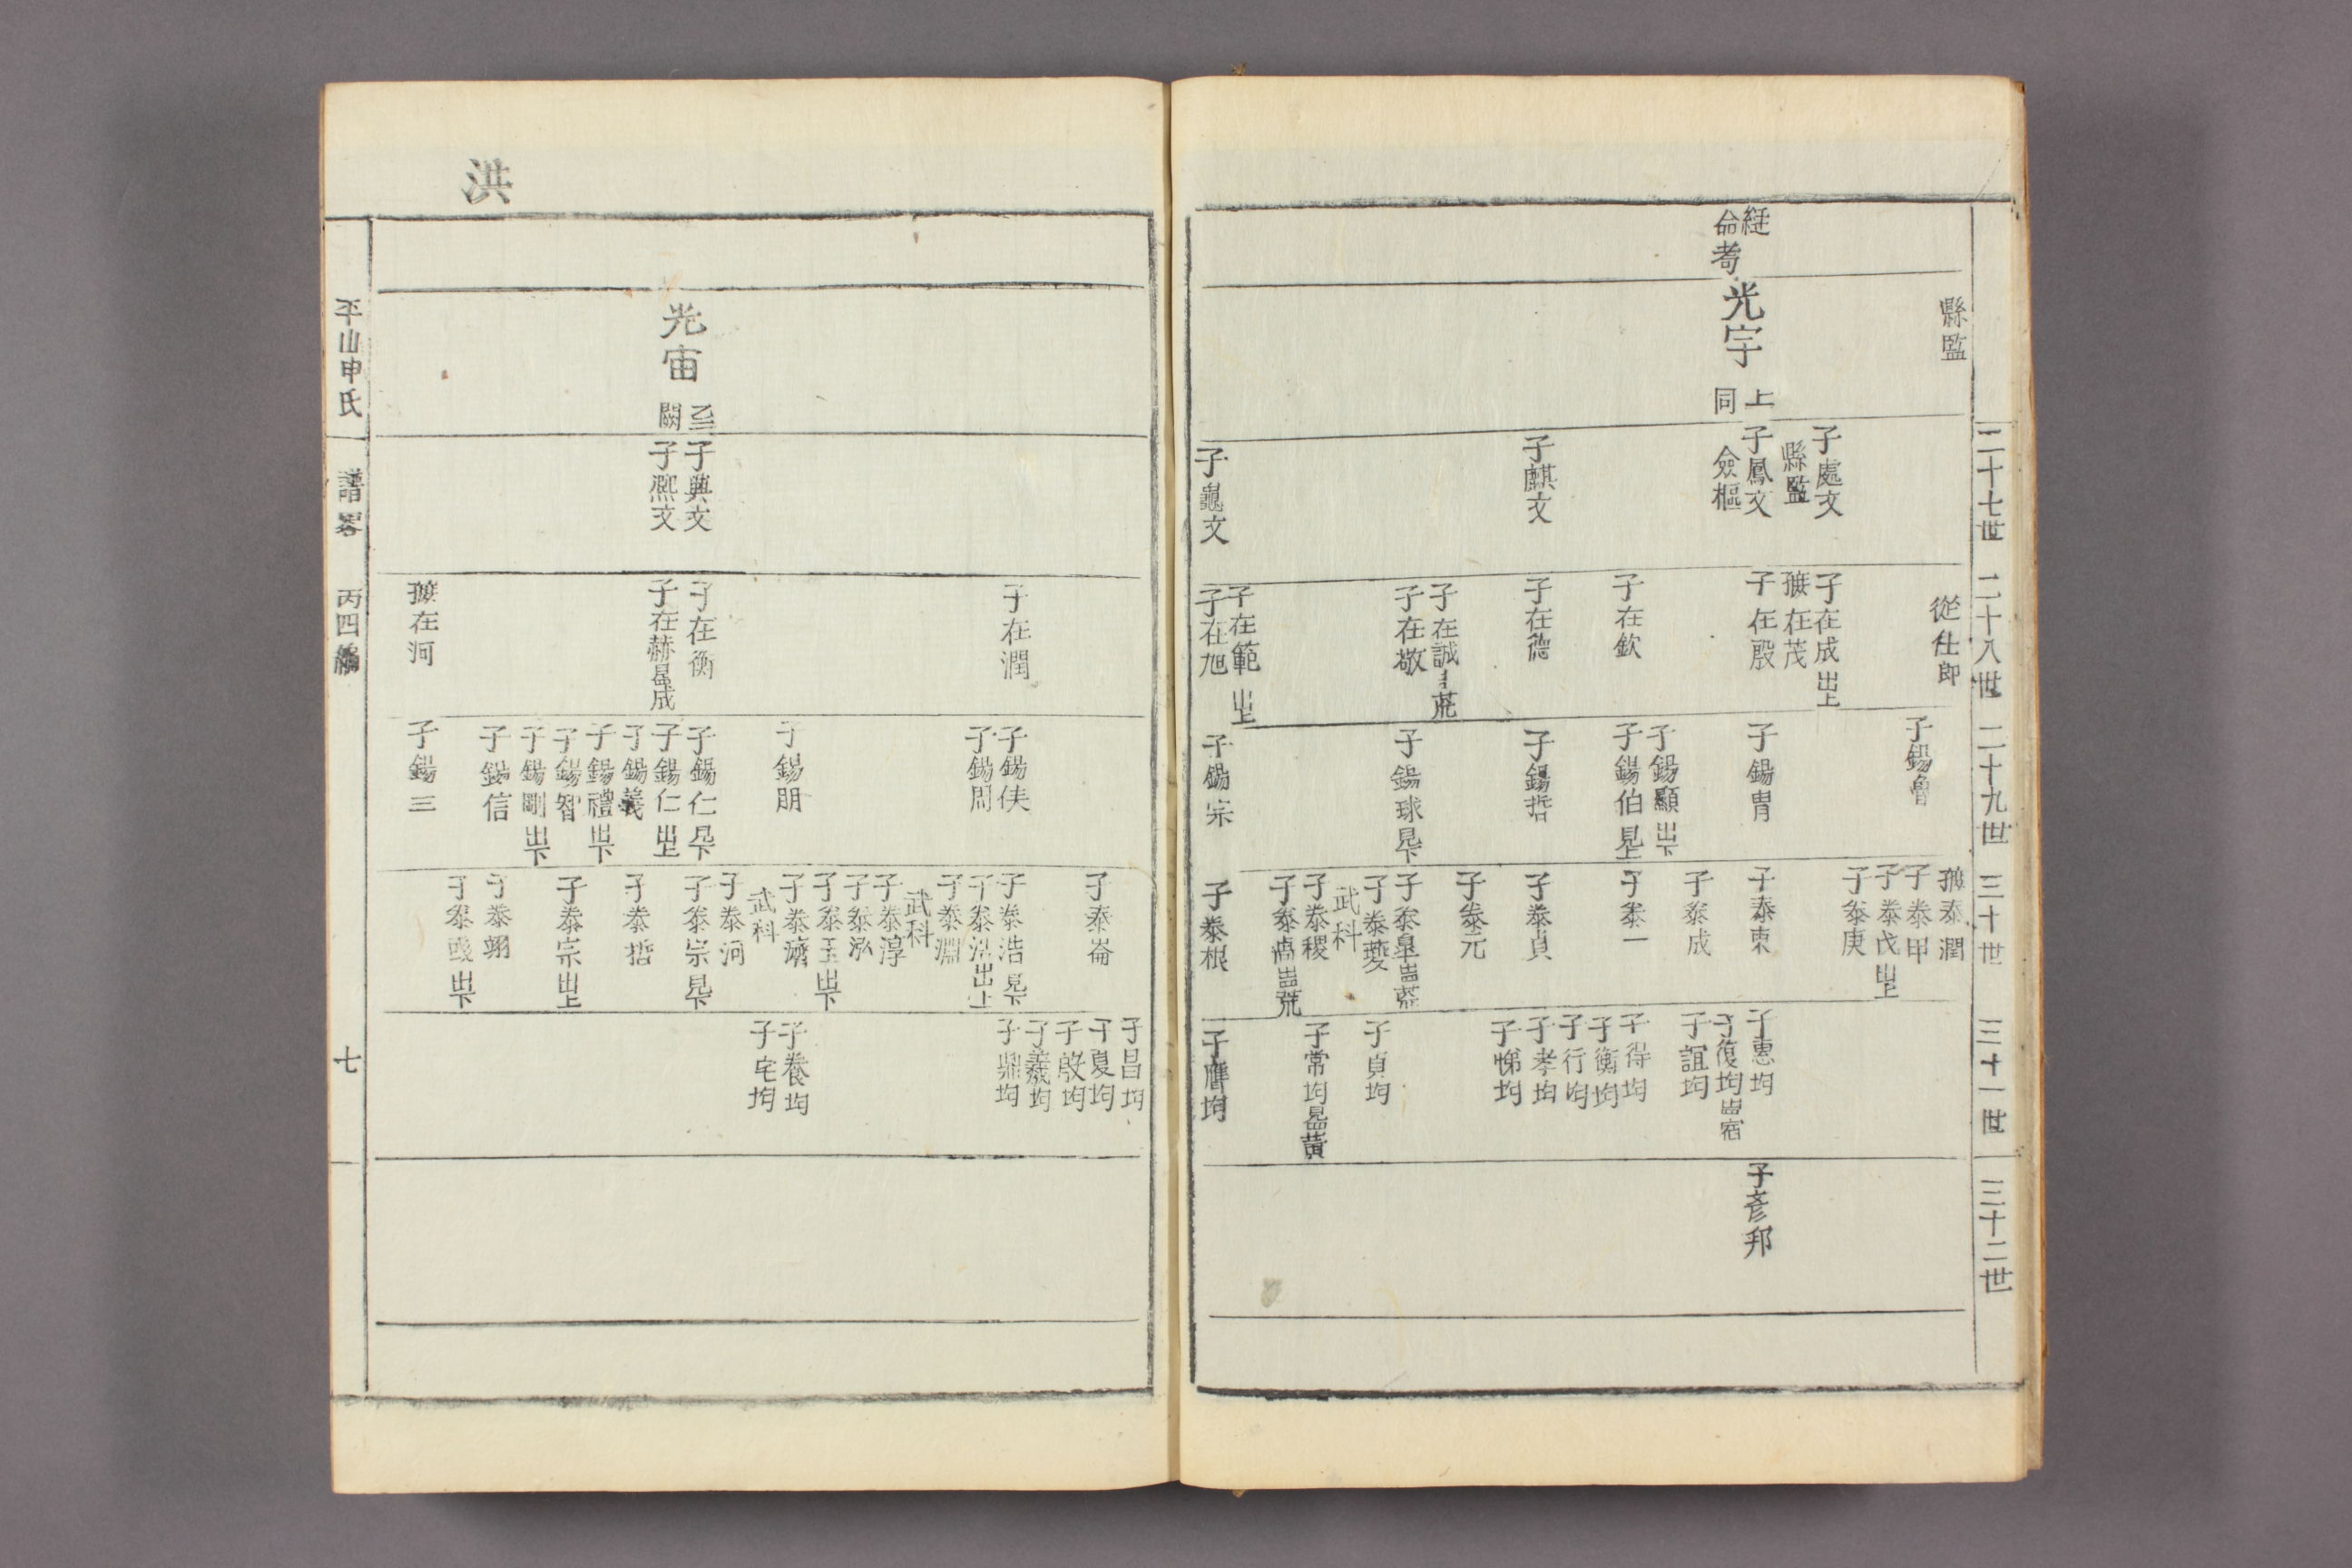 二十七世
二十八世
二十九世
三十世
三十一世
三十二世
縣監
光宇
上同
子處文
縣監
子鳳文
僉樞
子麒文
子龜文
從仕郎
子在成出上
在茂
子在殷
子在欽
子在德
子在誠
子在敬
子在範出上
子在旭
子錫魯
子錫胄
子錫顯出下
子錫伯見上
子錫哲
子錫球見下
子錫宗
泰潤
子泰甲
子泰戊出上
子泰庚
子泰東
子泰成
子泰一
子泰貞
子泰元
子泰皐
子泰夔
武科
子泰稷
子泰卨
子泰根
子惠均
子復均
子誼均
子得均
子衡均
子行均
子孝均
子悌均
子貞均
子常均
子膺均
子彥邦
洪
光宙
子興文
子熙文
子在潤
子在衡
子在赫
在河
子錫俠
子錫周
子錫朋
子錫仁見下
子錫仁出上
子錫義
子錫禮出下
子錫智
子錫剛出下
子錫信
子錫三
子泰崙
子泰浩見下
子泰泓出上
子泰淵
武科
子泰淳
子泰泓
子泰玉出下
子泰濟
武科
子泰河
子泰宗見下
子泰哲
子泰宗出上
子泰翊
子泰彧出下
子昌均
子夏均
子殷均
子羲均
子鼎均
子養均
子宅均
平山申氏
譜畧
丙四編
七